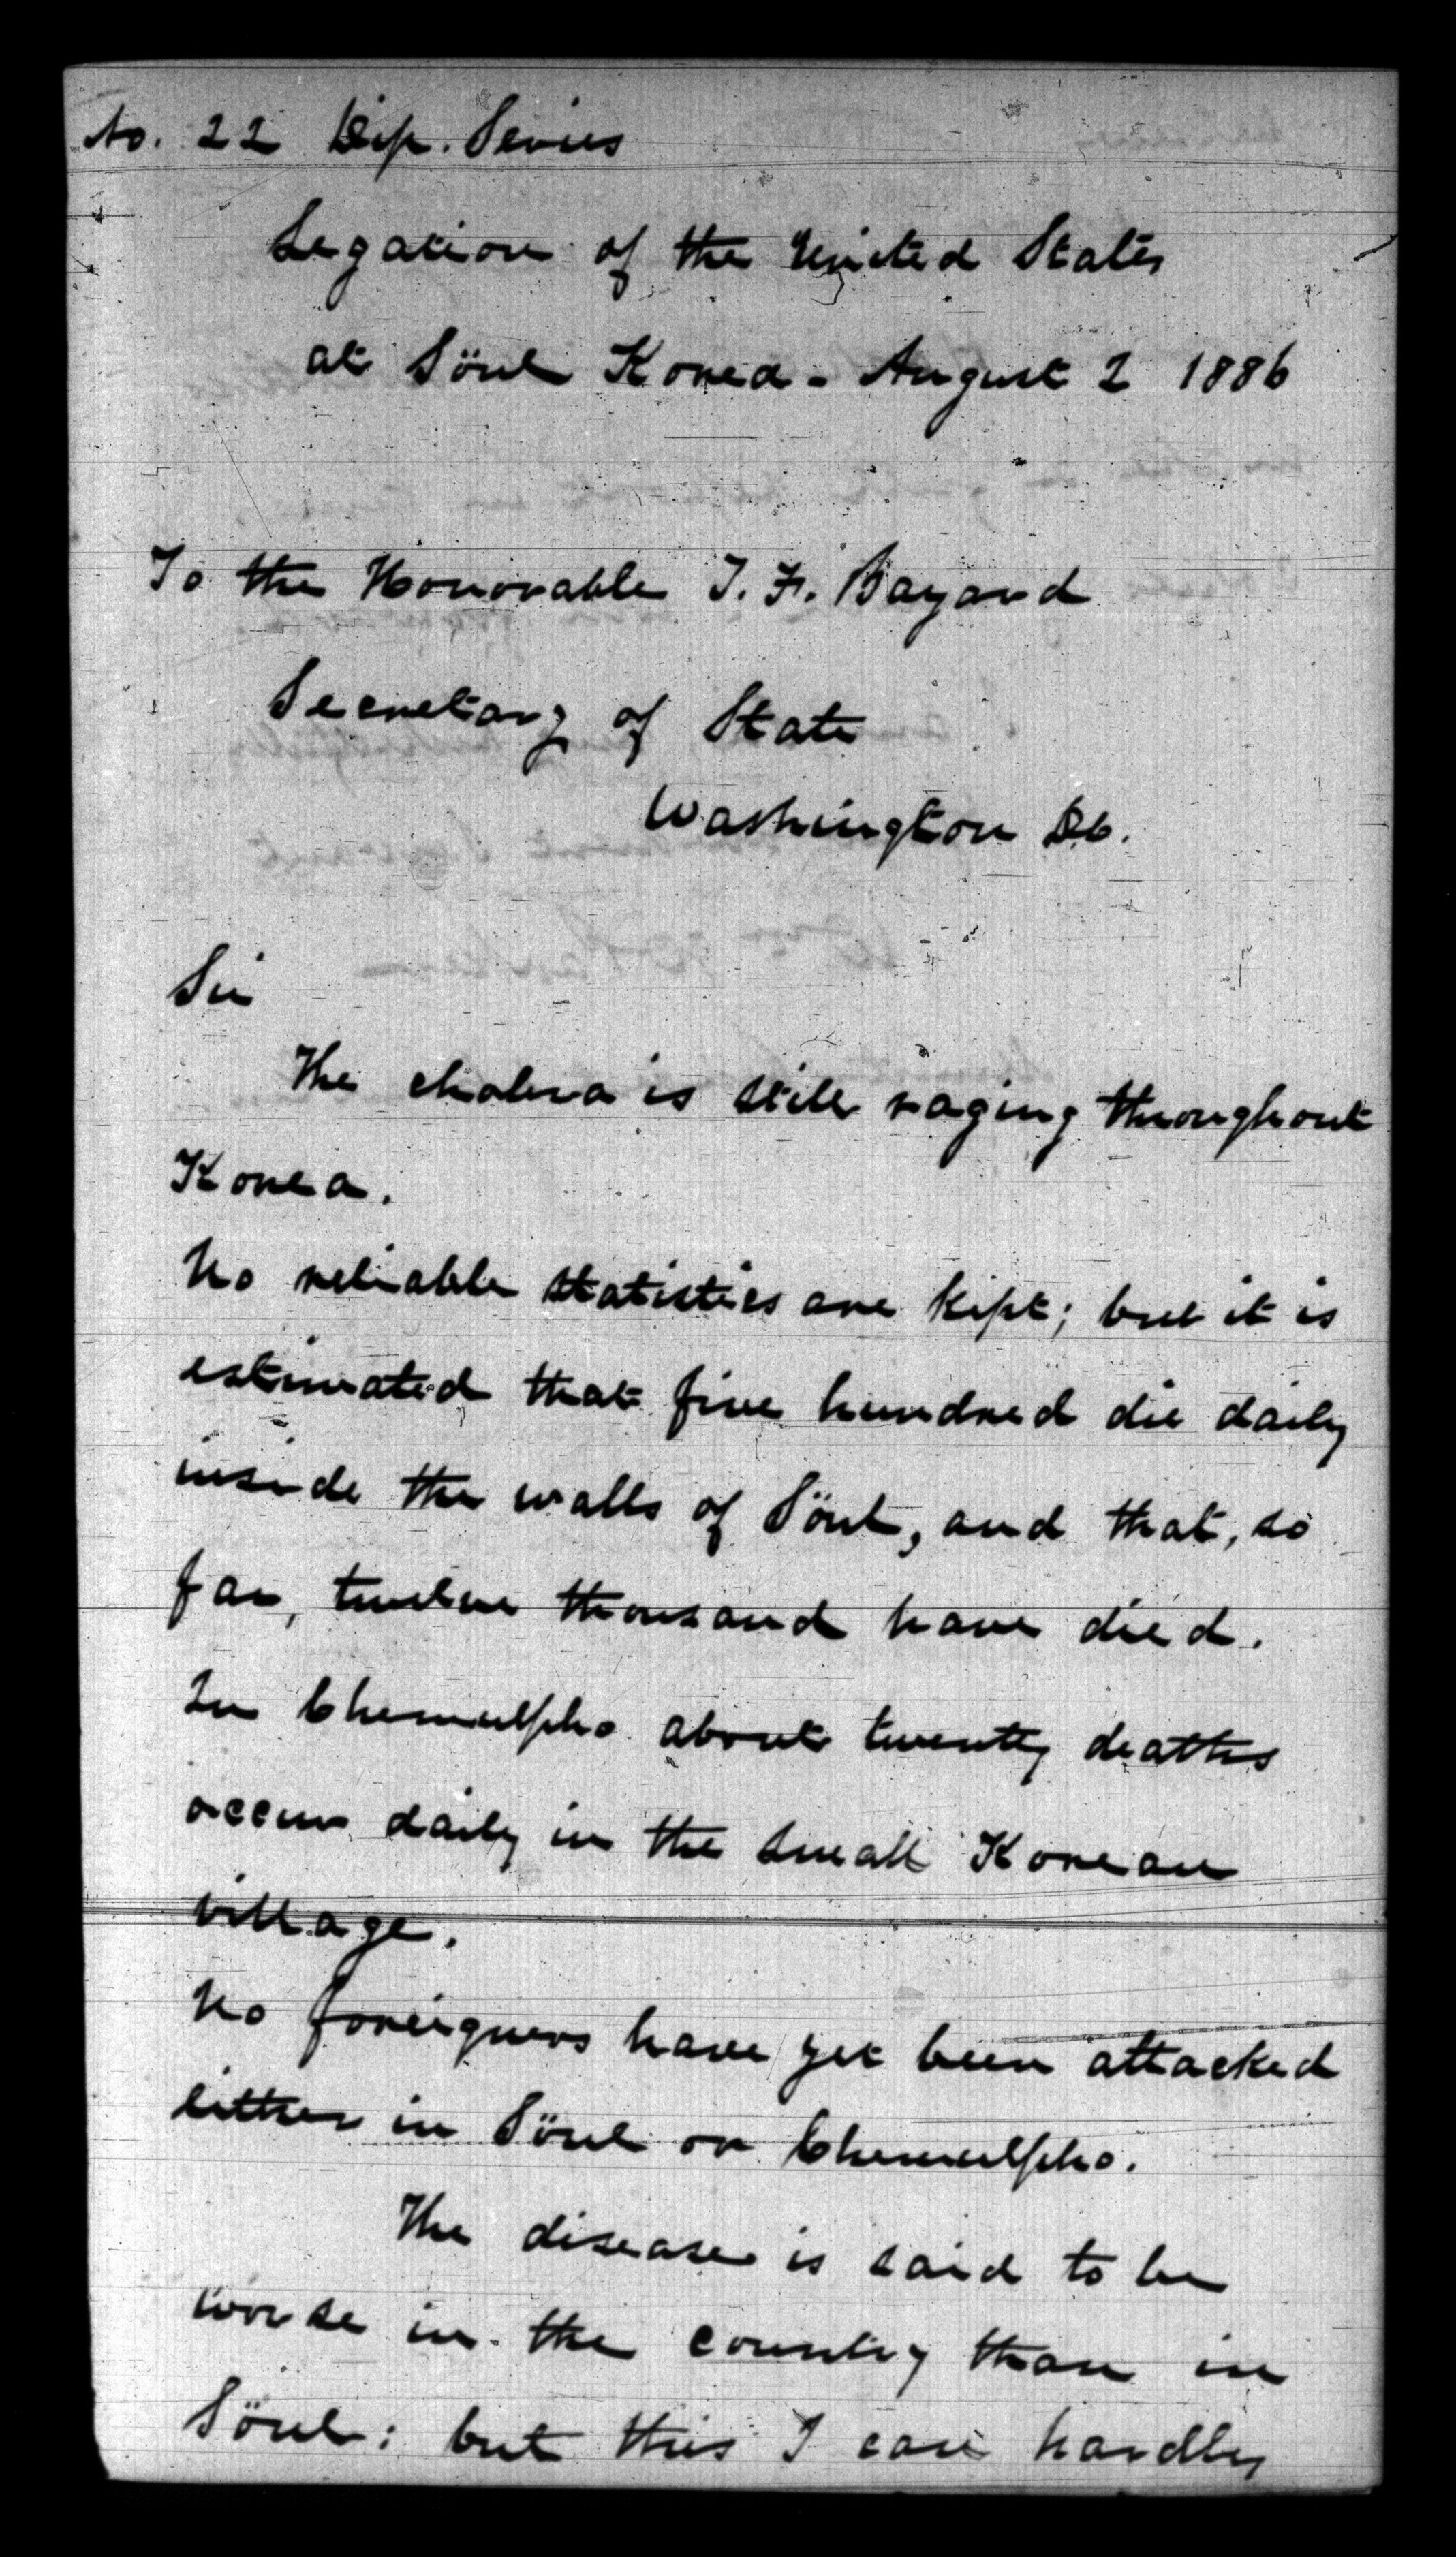 No. 22 Dip. Series
Legation of the United States
at Söul Korea - August 2 1886
To the Honorable T. F. Bayard
Secretary of State
Washington D.C.
Sir
The cholera is still raging throughout
Korea.
No reliable statistics are kept; but it is
estimated that five hundred die daily
inside the walls of Söul, and that, so
far, twelve thousand have died.
In Chemulpho about twenty deaths
occur daily in the small Korean
village.
No foreigners have yet been attacked
either in Söul or Chemulpho.
The disease is said to be
worse in the country than in
Söul: but this I can hardly